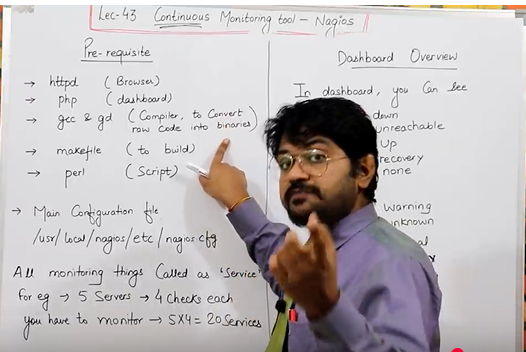 Lec-43 Continuous Monitoring tool - Nagios
Pre-requisite
→ httpd (Browser)
→ php (dashboard)
→ gcc & gd (Compiler, to Convert
row code into binaries)
→ makefile (to build)
→ perl (Script)
→ Main Configuration file
/usr/local/nagios/etc/nagios.cfg
All monitoring things Called as 'Service'
for eg → 5 Servers → 4 Checks each
you have to monitor → 5X4 = 20 Services
Dashboard Overview
In dashboard, you Can See
down
unreachable
Up
recovery
none
Warning
unknown